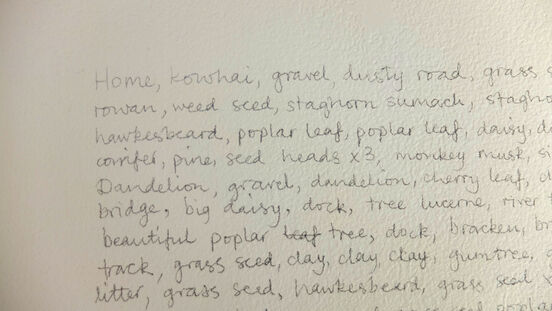 Home, kowhai, gravel, dusty road, grass
rowan, weed seed, staghorn sumach,
hawkesbeard, poplar leaf, poplar leaf, daisy,
conifer, pine, seed heads x3, monkey musk,
Dandelion, gravel, dandelion, cherry leaf,
bridge, big daisy, dock, tree lucerne, river
beautiful poplar leaf tree, dock, bracken,
track, grass seed, clay, clay, clay, gumtree,
litter, grass seed, hawkesbeard, grass seed